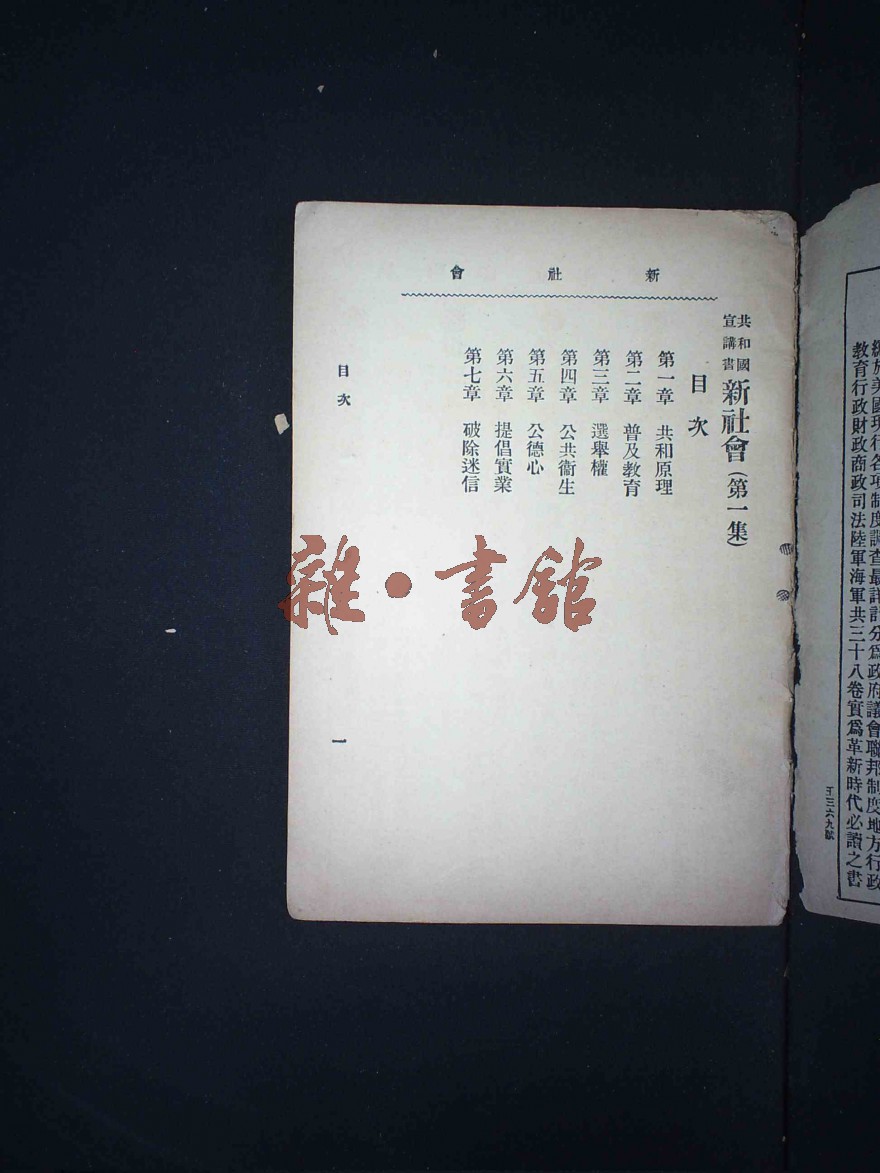 編於美國現行各項制度調查最詳計分爲政府議會聯邦制度地方行政
教育行政財政商政司法陸軍海軍共三十八卷實爲革新時代必讀之書
新社會
共和國宣講書 新社會(第一集)
目次
第一章 共和原理
第二章 普及教育
第三章 選舉權
第四章 公共衞生
第五章 公德心
第六章 提倡實業
第七章 破除迷信
目次
一
雜·書館